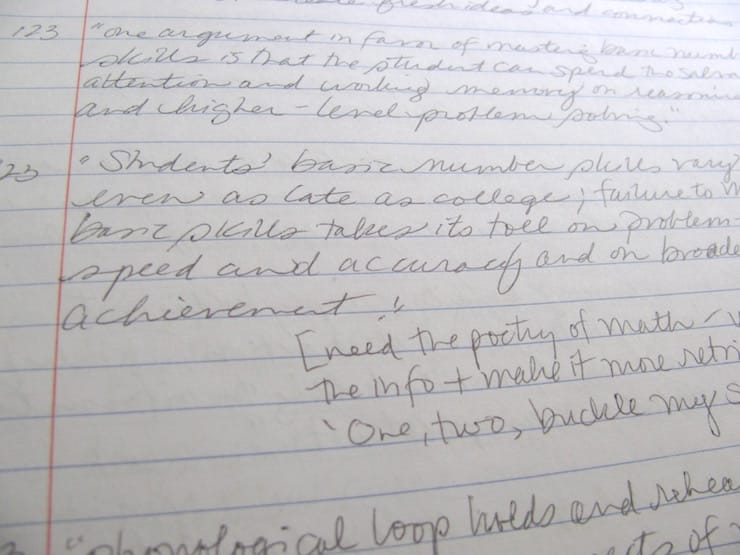 fresh ideas and connections
123 "one argument in favor of mastering basic numb
skills is that the student can spend
attention and working memory on reasoning
and higher-level problem solving."
23 "Students' basic number skills vary
even as late as college; failure to
basic skills takes its toll on problem-
speed and accuracy and on broade
achievement."
[need the poetry of math
the info + make it more retri
'One, two, buckle my s
"phonological loop holds and rehea
of